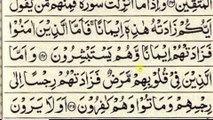 لِّلْمُتَّقِيْنَ وَاِذَا مَاۤ اُنْزِلَتْ سُوْرَةٌ فَمِنْهُمْ مَّنْ يَّقُوْلُ
اَيُّكُمْ زَادَتْهُ هٰذِهٖۤ اِيْمَانًا فَاَمَّا الَّذِيْنَ اٰمَنُوْا
فَزَادَتْهُمْ اِيْمَانًا وَّهُمْ يَسْتَبْشِرُوْنَ وَاَمَّا
الَّذِيْنَ فِيْ قُلُوْبِهِمْ مَّرَضٌ فَزَادَتْهُمْ رِجْسًا اِلٰى
رِجْسِهِمْ وَمَاتُوْا وَهُمْ كٰفِرُوْنَ اَوَلَا يَرَوْنَ